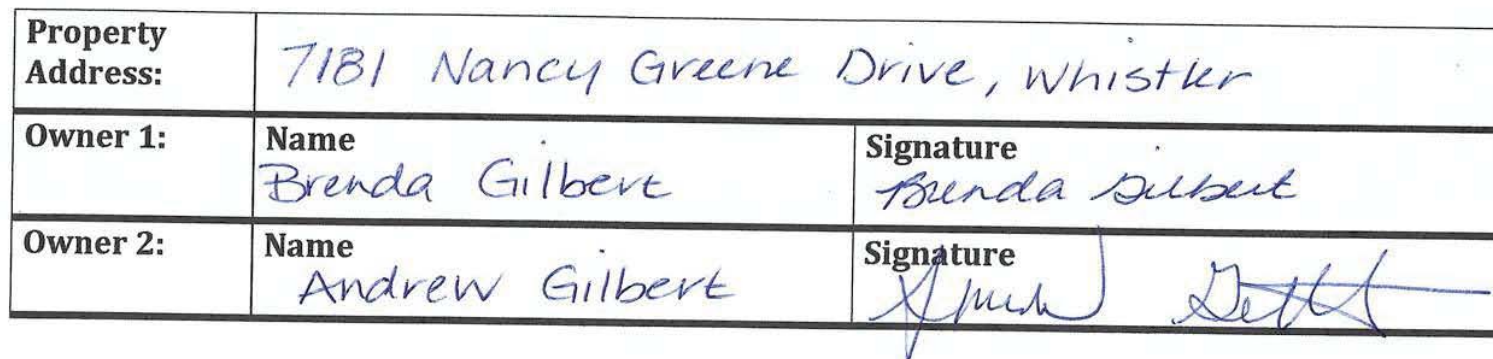 Property
Address:
7181 Nancy Greene Drive, Whistler
Owner 1:
Name
Brenda Gilbert
Signature
Brenda Gilbert
Owner 2:
Name
Andrew Gilbert
Signature